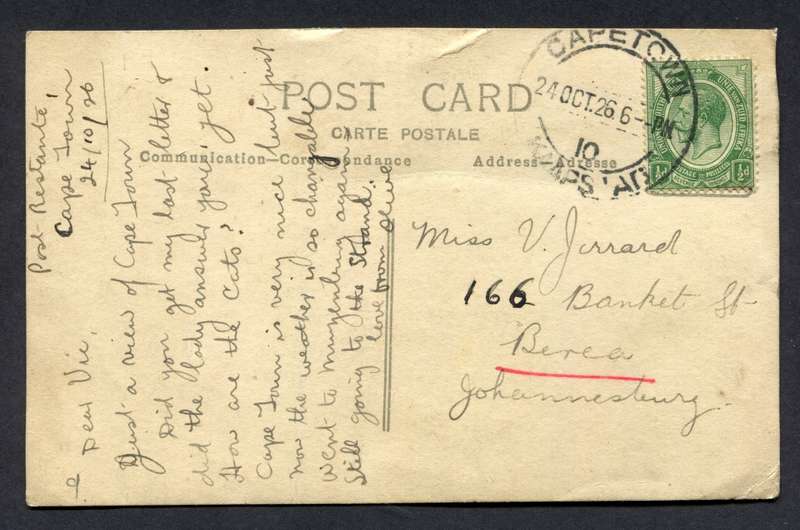 POST CARD
CARTE POSTALE
Communication—Correspondance
Address—Adresse
CAPETOWN
24 OCT. 26 6 - PM
10
KAAPSTAD
½d
½d
Post Restante,
Cape Town
24/10/26
Dear Vic,
Just a view of Cape Town
Did you get my last letter &
did the lady answer your yet.
How are the Cats?
Cape Town is very nice but just
now the weather is so changable
Went to Muizenburg again
Still going to the Strand.
love from Olive
Miss V. Jirrard
166 Banket St
Berea
Johannesburg